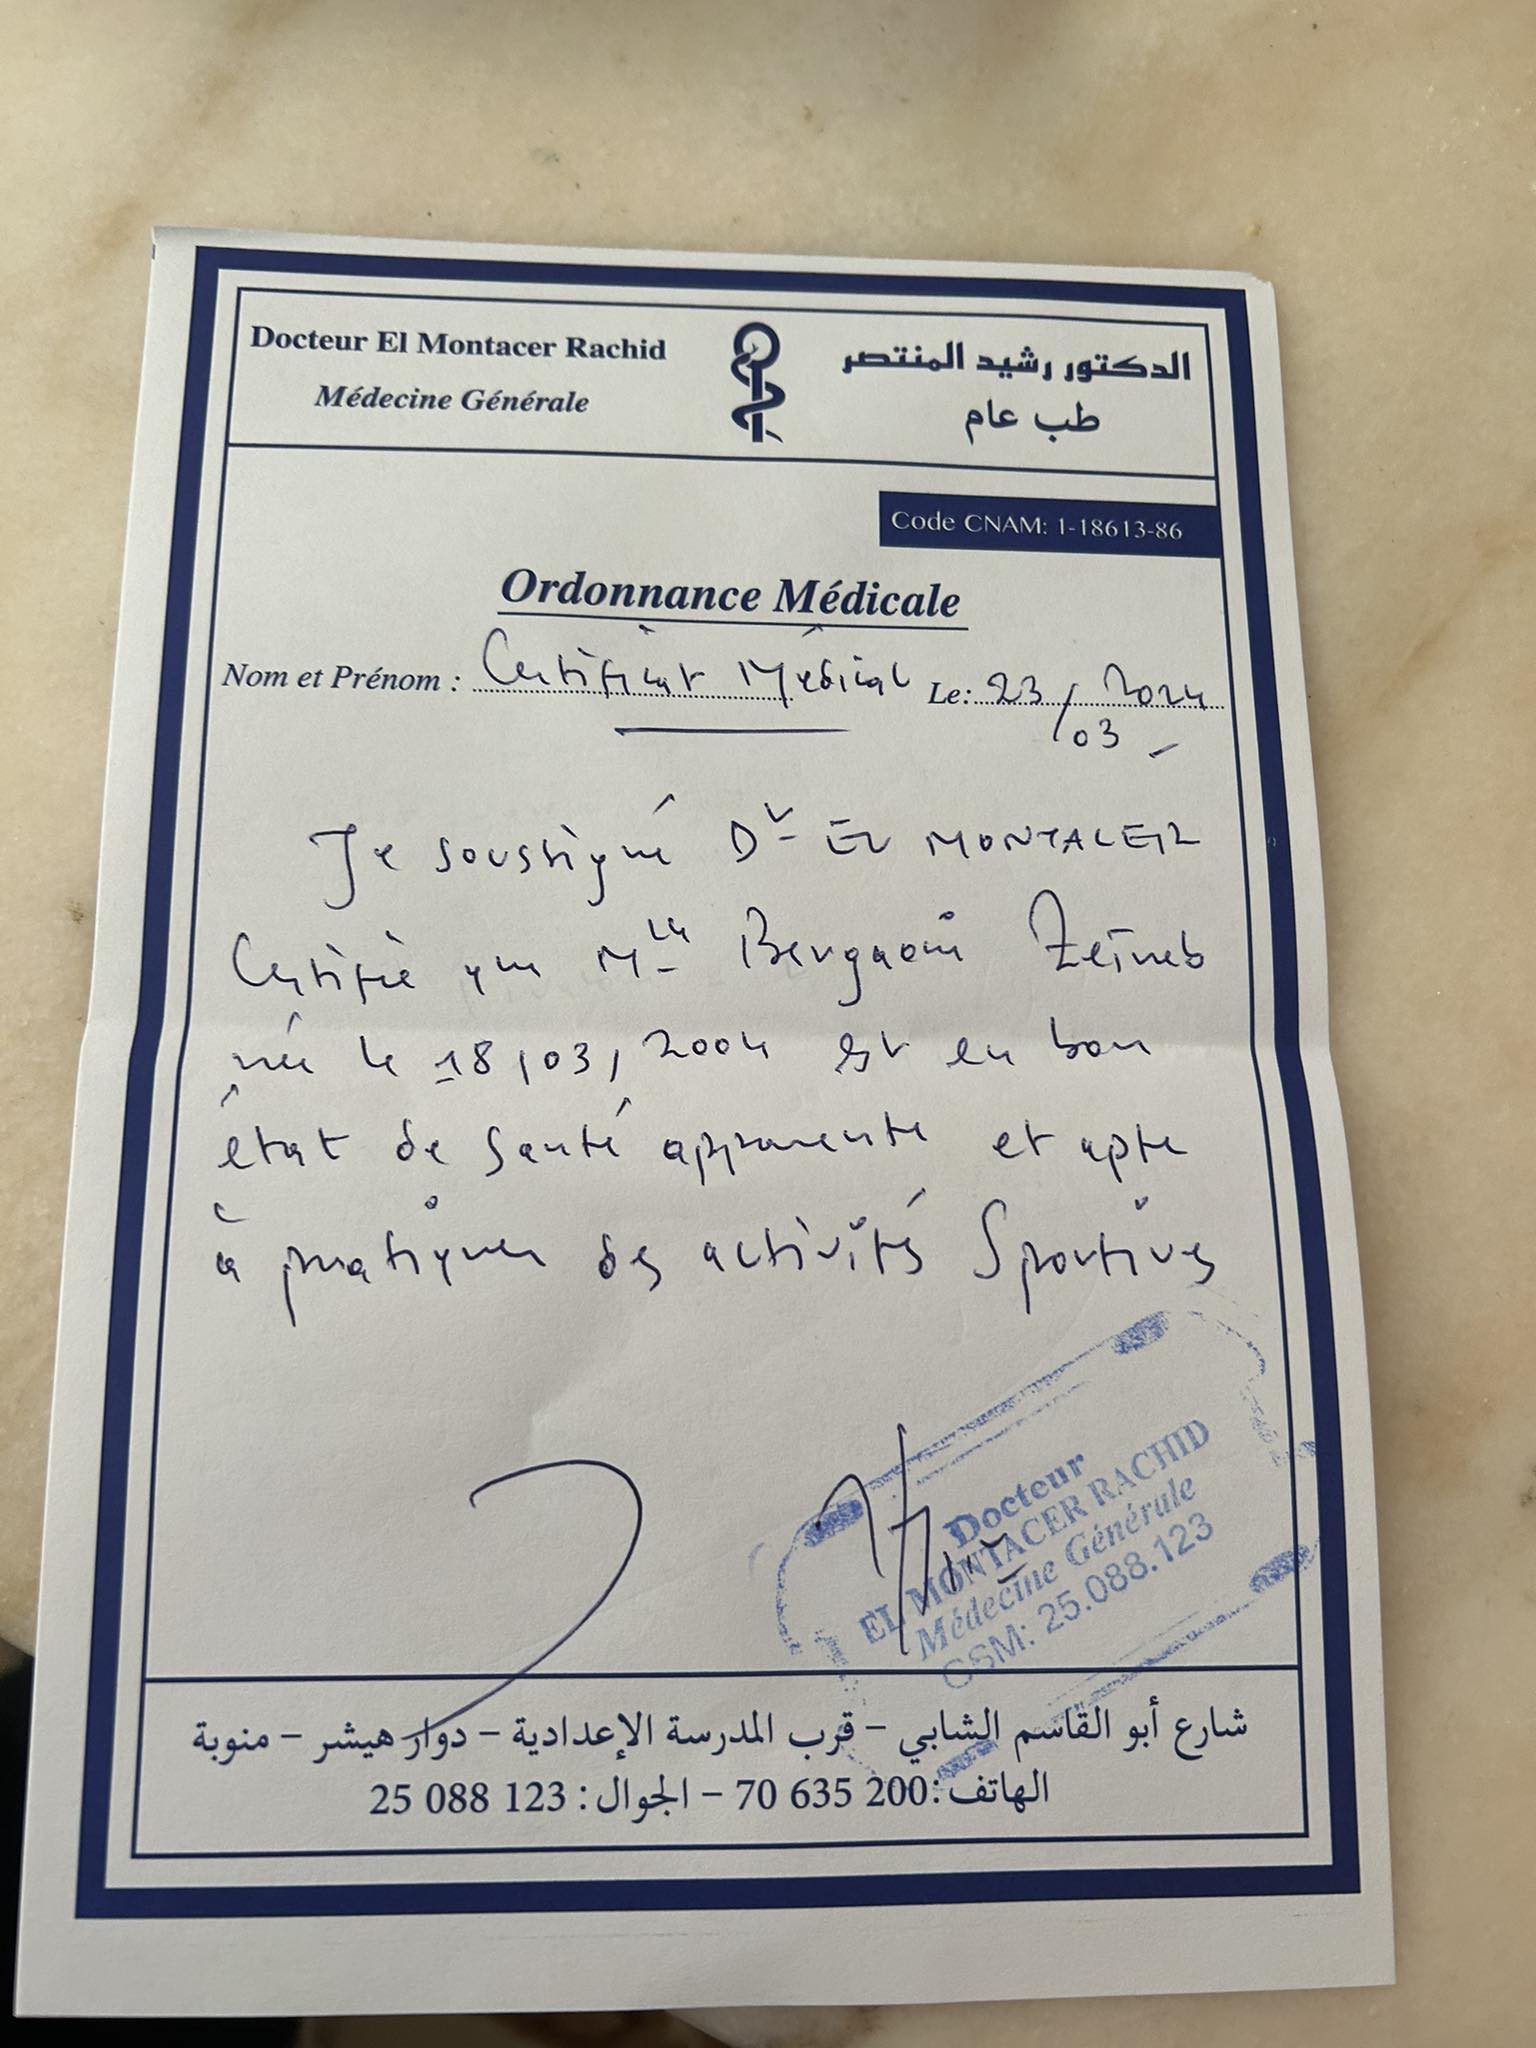 Docteur El Montacer Rachid
Médecine Générale
الدكتور رشيد المنتصر
طب عام
Code CNAM: 1-18613-86
Ordonnance Médicale
Nom et Prénom : Certificat Médical Le: 23/03/2024
Je soussigné Dr EL MONTACER
Certifie que Mlle Bergaoui Zeineb
née le 18/03/2004 est en bon
état de santé apparente et apte
à pratiquer des activités Sportives
Docteur
EL MONTACER RACHID
Médecine Générale
GSM: 25.088.123
شارع أبو القاسم الشابي - قرب المدرسة الإعدادية - دوار هيشر - منوبة
الهاتف: 70 635 200 - الجوال: 25 088 123